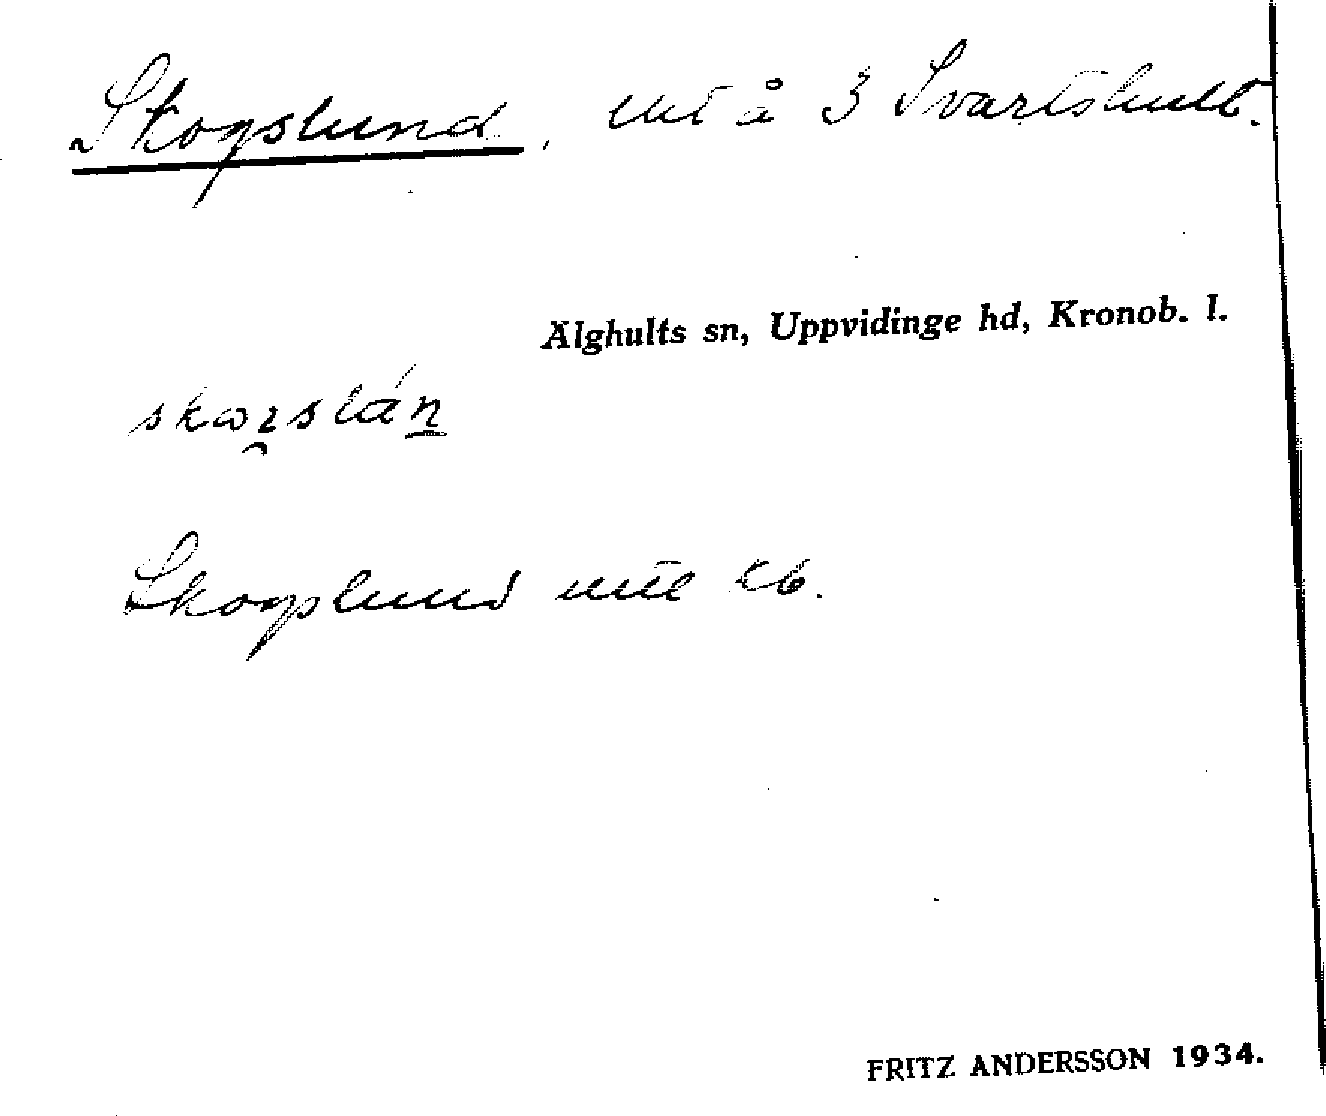 Skogslund, utj å 3 Svartshult.
Älghults sn, Uppvidinge hd, Kronob. l.
Skogslund utj
FRITZ ANDERSSON 1934.